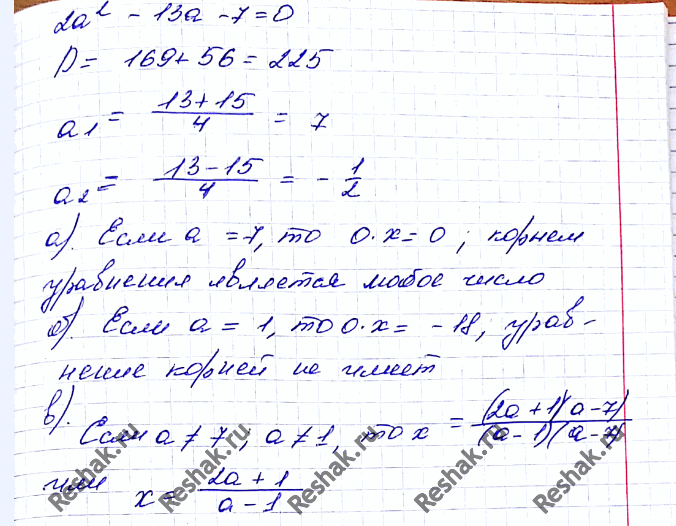 2a² - 13a - 7 = 0
D = 169 + 56 = 225
a₁ = (13 + 15)/4 = 7
a₂ = (13 - 15)/4 = -1/2
а). Если a = 7, то 0·x = 0; корнем
уравнения является любое число
б). Если a = 1, то 0·x = -18; урав-
нение корней не имеет
в). Если a ≠ 7; a ≠ 1, то x = (2a + 1)(a - 7)/(a - 1)(a - 7)
или x = (2a + 1)/(a - 1)
Reshak.ru Reshak.ru Reshak.ru Reshak.ru